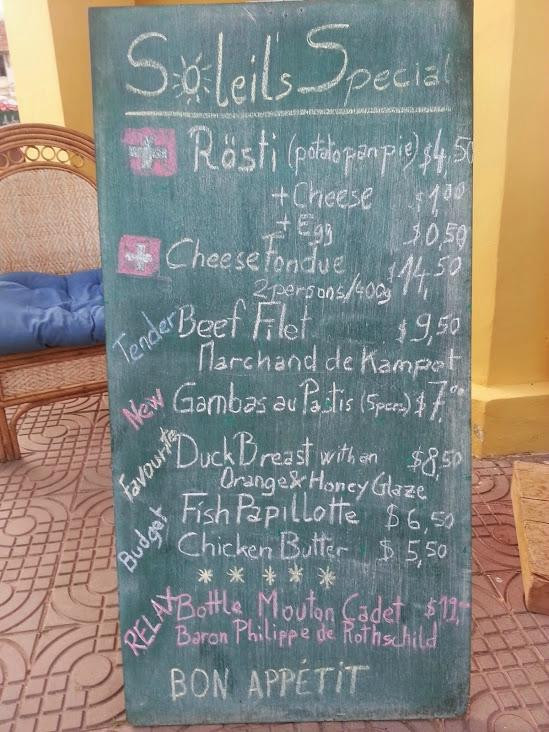 Soleil's Special
Rösti (potato pan pie) $4,50
+ Cheese $1,00
+ Egg $0,50
Cheese Fondue $14,50
2 persons/400g
Tender Beef Filet $9,50
Marchand de Kampot
New Gambas au Pastis (5pces) $7,00
Favourite Duck Breast with an $8,50
Orange & Honey Glaze
Budget Fish Papillotte $6,50
Chicken Butter $5,50
RELAX Bottle Mouton Cadet $19,-
Baron Philippe de Rothschild
BON APPÉTIT